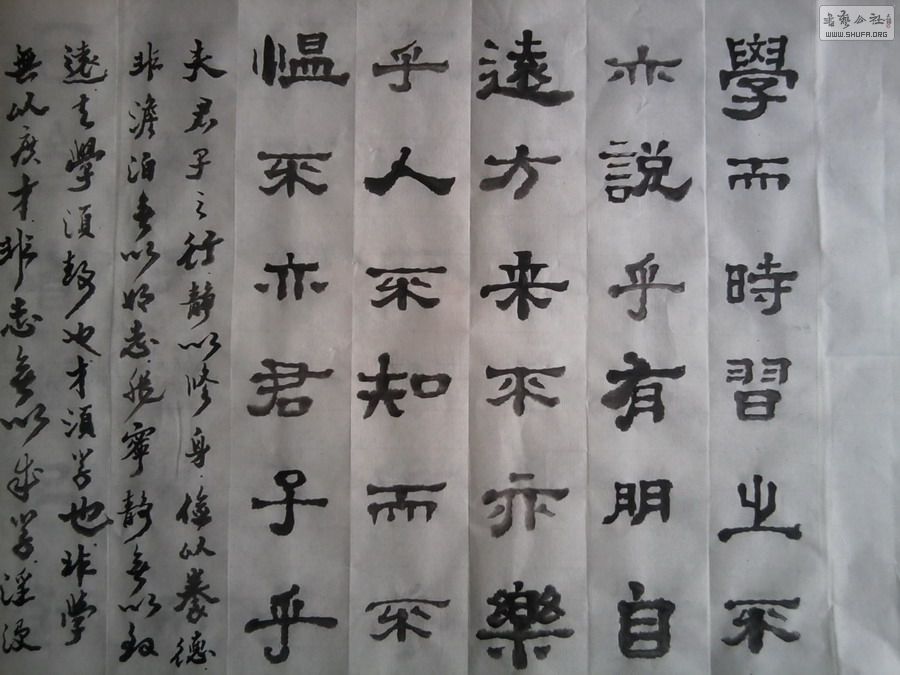 學而時習之不
亦說乎有朋自
遠方来不亦樂
乎人不知而不
愠不亦君子乎
夫君子之行靜以修身儉以養德
非澹泊無以明志非寧靜無以致
遠夫學須静也才須学也非學
無以廣才非志無以成学淫慢
書藝公社
WWW.SHUFA.ORG